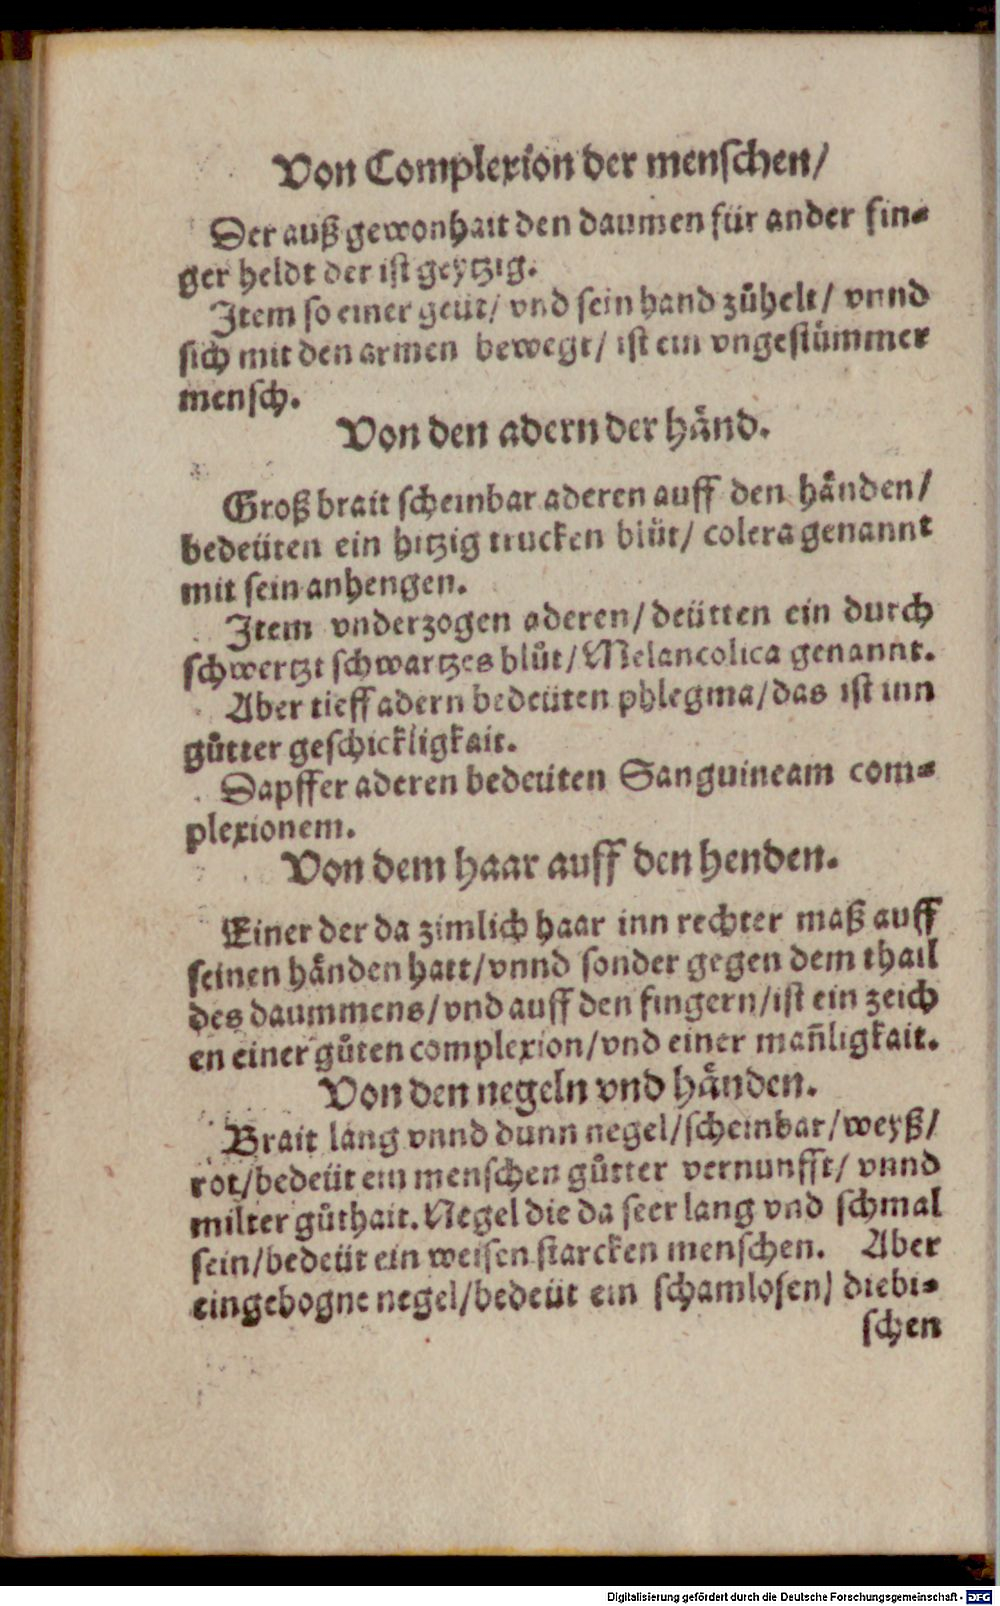 Von Complexion der menschen/
Der auß gewonhait den daumen für ander fin⸗
ger heldt der ist geytzig.
Item so einer geüt/ vnd sein hand zůhelt/ vnnd
sich mit den armen bewegt/ ist ein vngestümmer
mensch.
Von den adern der hånd.
Groß brait scheinbar aderen auff den hånden/
bedeüten ein hitzig trucken blüt/ colera genannt
mit sein anhengen.
Item vnderzogen aderen/ deütten ein durch
schwertzt schwartzes blůt/ Melancolica genannt.
Aber tieff adern bedeüten phlegma/ das ist inn
gůtter geschickligkait.
Dapffer aderen bedeüten Sanguineam com⸗
plexionem.
Von dem haar auff den henden.
Einer der da zimlich haar inn rechter maß auff
seinen hånden hatt/ vnnd sonder gegen dem thail
des daummens/ vnd auff den fingern/ ist ein zeich
en einer gůten complexion/ vnd einer mañligkait.
Von den negeln vnd hånden.
Brait lang vnnd dunn negel/ scheinbar/ weyß/
rot/ bedeüt ein menschen gůtter vernunfft/ vnnd
milter gůthait. Negel die da seer lang vnd schmal
sein/ bedeüt ein weisen starcken menschen. Aber
eingebogne negel/ bedeüt ein schamlosen/ diebi⸗
schen
Digitalisierung gefördert durch die Deutsche Forschungsgemeinschaft - DFG